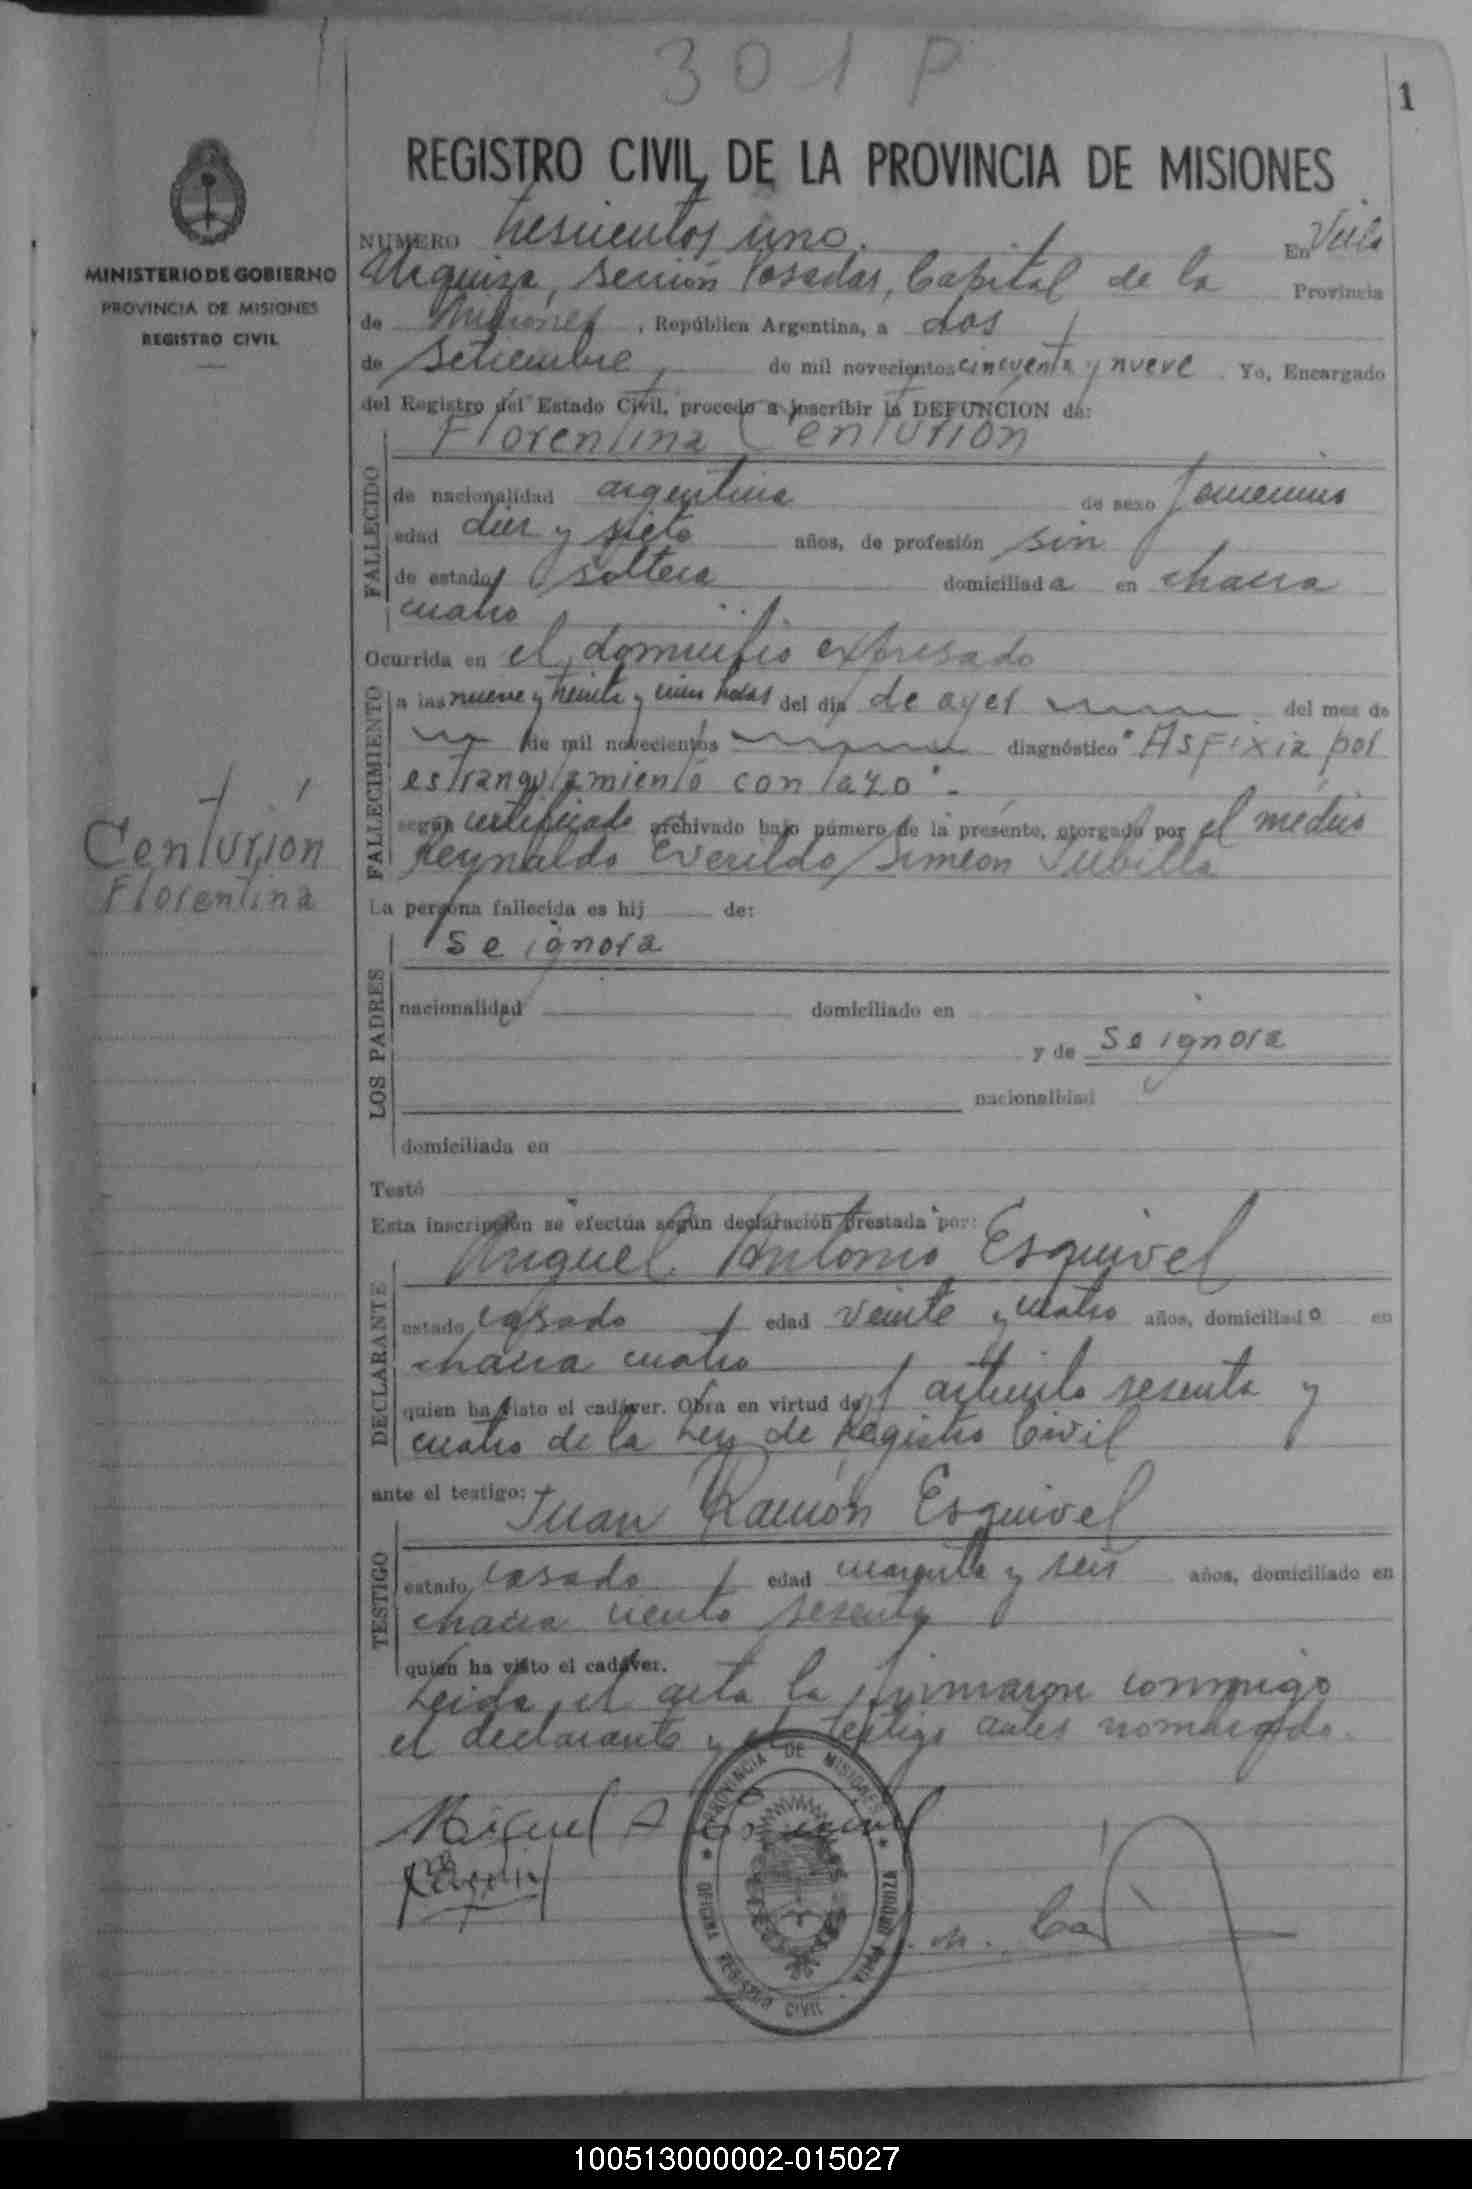 301 P
1
REGISTRO CIVIL DE LA PROVINCIA DE MISIONES
MINISTERIO DE GOBIERNO
PROVINCIA DE MISIONES
REGISTRO CIVIL
NUMERO trescientos uno. En Villa
Urquiza, sección Posadas, Capital de la Provincia
de Misiones, República Argentina, a dos
de setiembre, de mil novecientos cincuenta y nueve. Yo, Encargado
del Registro del Estado Civil, procedo a inscribir la DEFUNCION de:
Florentina Centurión
FALLECIDO
de nacionalidad argentina de sexo femenino
edad diez y siete años, de profesión sin
de estado soltera domiciliada en chacra
cuatro
Ocurrida en el domicilio expresado
FALLECIMIENTO
a las nueve y treinta y cinco horas del día de ayer del mes de
de mil novecientos diagnóstico "Asfixia por
estrangulamiento con lazo".
según certificado archivado bajo número de la presente, otorgado por el médico
Reynaldo Everildo Simeon Jubilla
Centurión
Florentina
La persona fallecida es hij de:
LOS PADRES
se ignora
nacionalidad domiciliado en
y de se ignora
nacionalidad
domiciliada en
Testó
Esta inscripción se efectúa según declaración prestada por:
Miguel Antonio Esquivel
DECLARANTE
estado casado edad veinte y cuatro años, domiciliado en
chacra cuatro
quien ha visto el cadáver. Obra en virtud del artículo sesenta y
cuatro de la Ley de Registro Civil
ante el testigo:
Juan Ramón Esquivel
TESTIGO
estado casado edad cuarenta y seis años, domiciliado en
chacra ciento sesenta
quien ha visto el cadáver.
Leida el acta la firmaron conmigo
el declarante y el testigo antes nombrado.
Miguel A Esquivel
PROVINCIA DE MISIONES
OFICINA REGISTRO CIVIL
URQUIZA
100513000002-015027